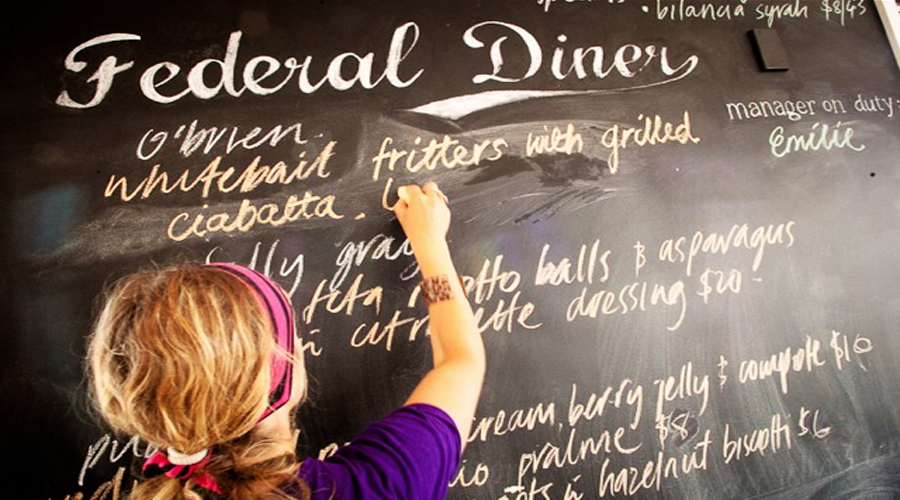 bilancia syrah $8/45
Federal Diner
manager on duty:
Emilie
O'brien.
whitebait fritters with grilled
ciabatta.
balls & asparagus
dressing $20-
cream, berry jelly & compote $10
praline $8
hazelnut biscotti $6